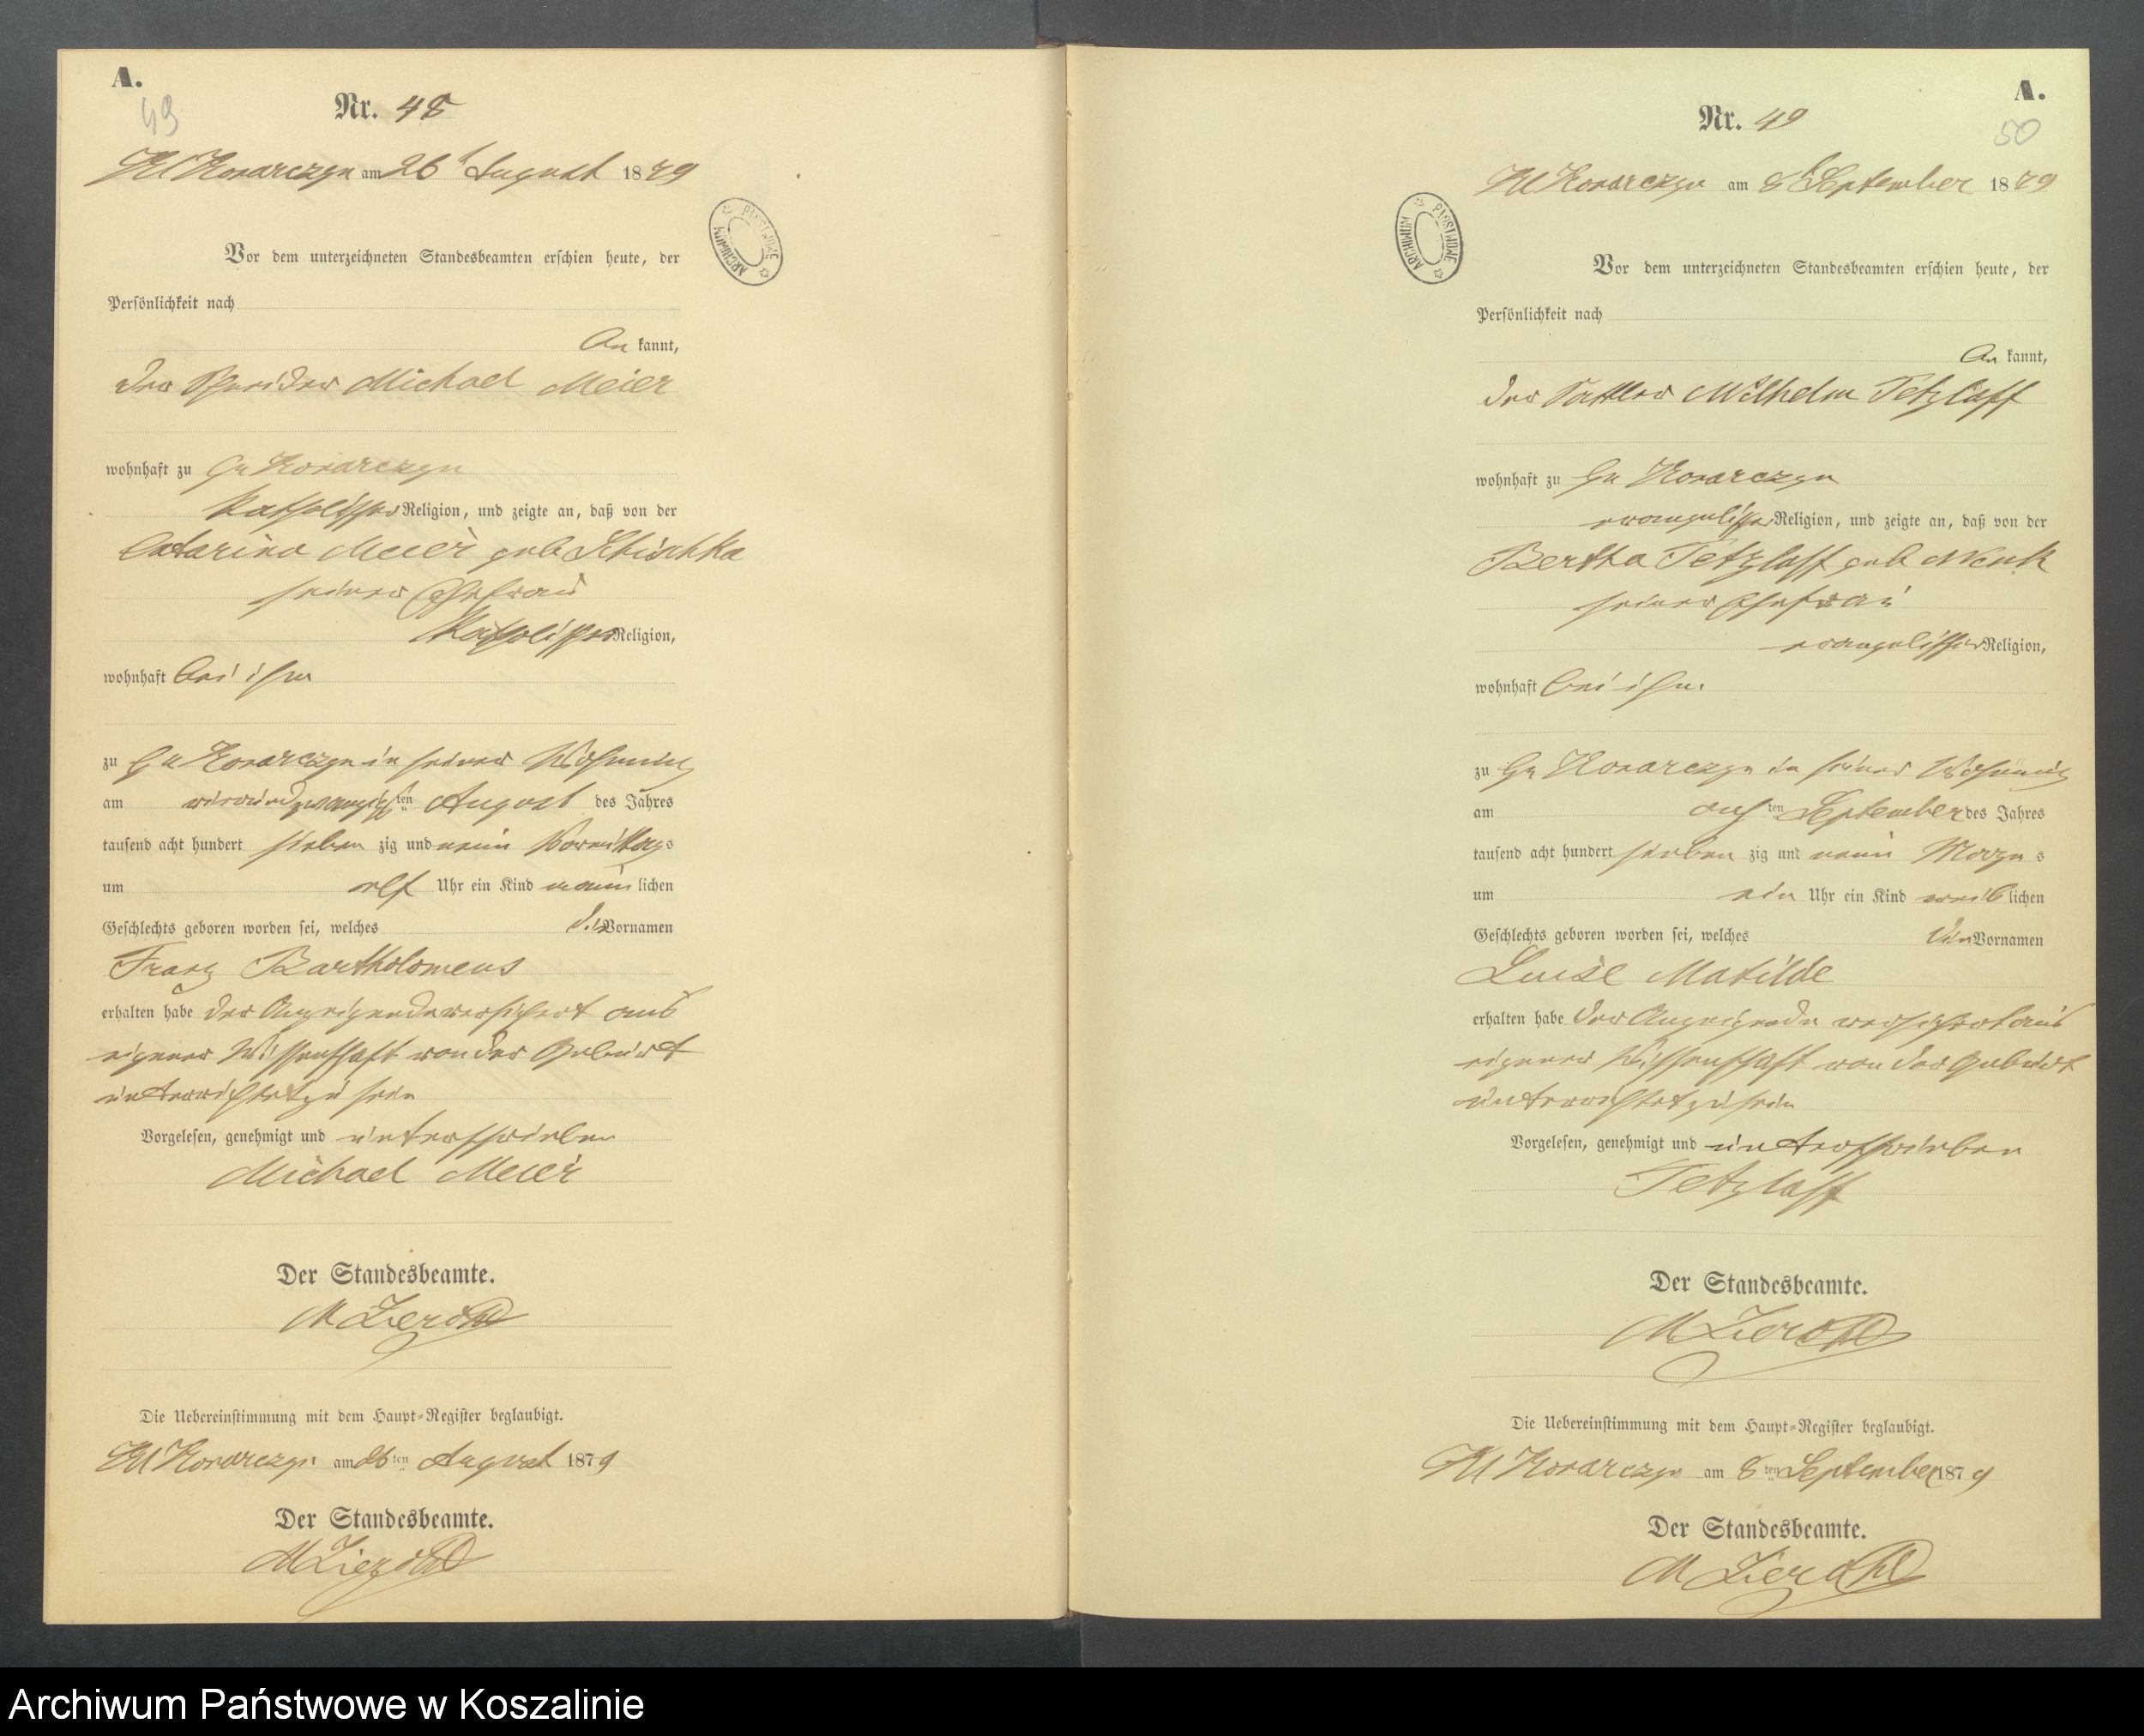 A.
49
Nr. 48
Kl Konarczyn am 26t August 1879
ARCHIWUM PAŃSTWOWE
Vor dem unterzeichneten Standesbeamten erschien heute, der
Persönlichkeit nach
An kannt,
der Michael Meier
wohnhaft zu Gr Konarczyn
katholischer Religion, und zeigte an, daß von der
Catarina Meier geb
seiner Ehefrau
katholischer Religion,
wohnhaft bei ihm
zu Gr Konarczyn in seiner Wohnung
am vierundzwanzigsten August des Jahres
tausend acht hundert sieben zig und neun Vormittags
um elf Uhr ein Kind männlichen
Geschlechts geboren worden sei, welches die Vornamen
Franz Bartholomeus
erhalten habe der Anzeigende versichert aus
eigener Wissenschaft von der Geburt
unterrichtet zu sein
Vorgelesen, genehmigt und unterschrieben
Michael Meier
Der Standesbeamte.
Die Uebereinstimmung mit dem Haupt-Register beglaubigt.
Kl Konarczyn am 26ten August 1879
Der Standesbeamte.
A.
50
Nr. 49
Kl Konarczyn am 8t September 1879
ARCHIWUM PAŃSTWOWE
Vor dem unterzeichneten Standesbeamten erschien heute, der
Persönlichkeit nach
An kannt,
der Sattler Wilhelm Tetzlaff
wohnhaft zu Gr Konarczyn
evangelischer Religion, und zeigte an, daß von der
Bertha Tetzlaff geb
seiner Ehefrau
evangelischer Religion,
wohnhaft bei ihm
zu Gr Konarczyn in seiner Wohnung
am achten September des Jahres
tausend acht hundert sieben zig und neun Morgens
um ein Uhr ein Kind weiblichen
Geschlechts geboren worden sei, welches die Vornamen
Luise Matilde
erhalten habe der Anzeigende versichert aus
eigener Wissenschaft von der Geburt
unterrichtet zu sein
Vorgelesen, genehmigt und unterschrieben
Tetzlaff
Der Standesbeamte.
Die Uebereinstimmung mit dem Haupt-Register beglaubigt.
Kl Konarczyn am 8ten September 1879
Der Standesbeamte.
Archiwum Państwowe w Koszalinie